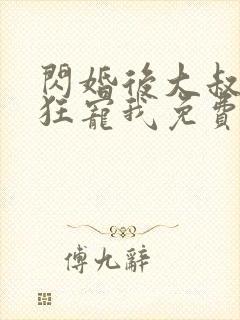 閃婚後大叔
狂寵我免費
傅九辭